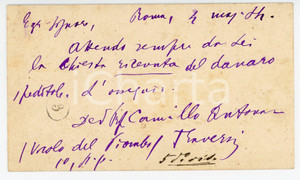 Egr. Signore, Roma, 2 mag. 84
Attendo sempre da Lei
la chiesta ricevuta del danaro
speditole. D'ossequi
Camillo Antona
Traversi
Vicolo del Piombo